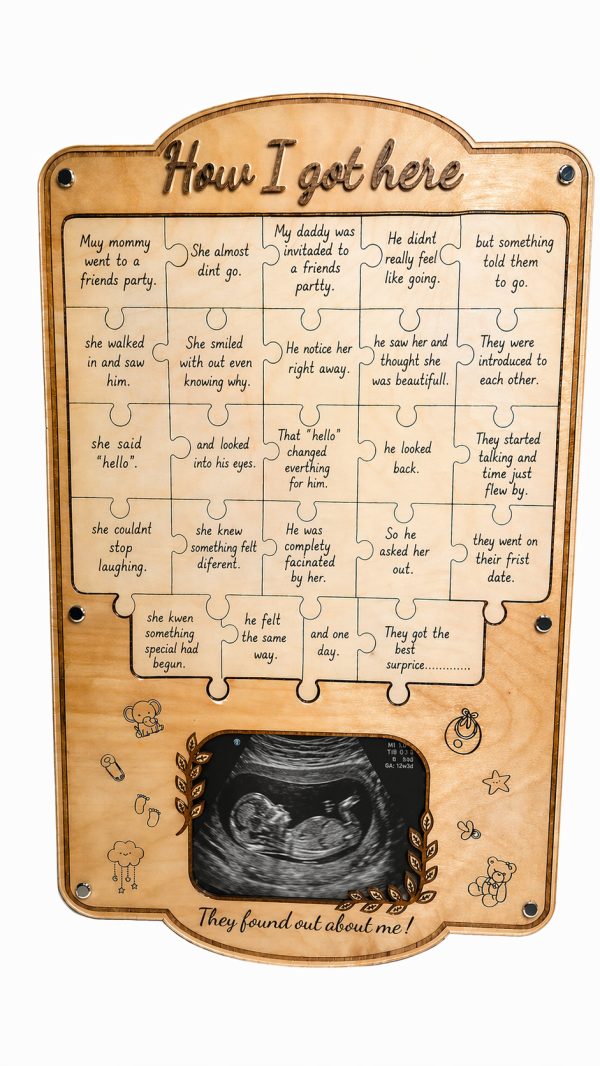 How I got here
Muy mommy
went to a
friends party.
She almost
dint go.
My daddy was
invitaded to
a friends
partty.
He didnt
really feel
like going.
but something
told them
to go.
she walked
in and saw
him.
She smiled
with out even
knowing why.
He notice her
right away.
he saw her and
thought she
was beautifull.
They were
introduced to
each other.
she said
"hello".
and looked
into his eyes.
That "hello"
changed
everthing
for him.
he looked
back.
They started
talking and
time just
flew by.
she couldnt
stop
laughing.
she knew
something felt
diferent.
He was
complety
facinated
by her.
So he
asked her
out.
they went on
their frist
date.
she kwen
something
special had
begun.
he felt
the same
way.
and one
day.
They got the
best
surprise.............
MI 1.0
GA: 12w3d
They found out about me!